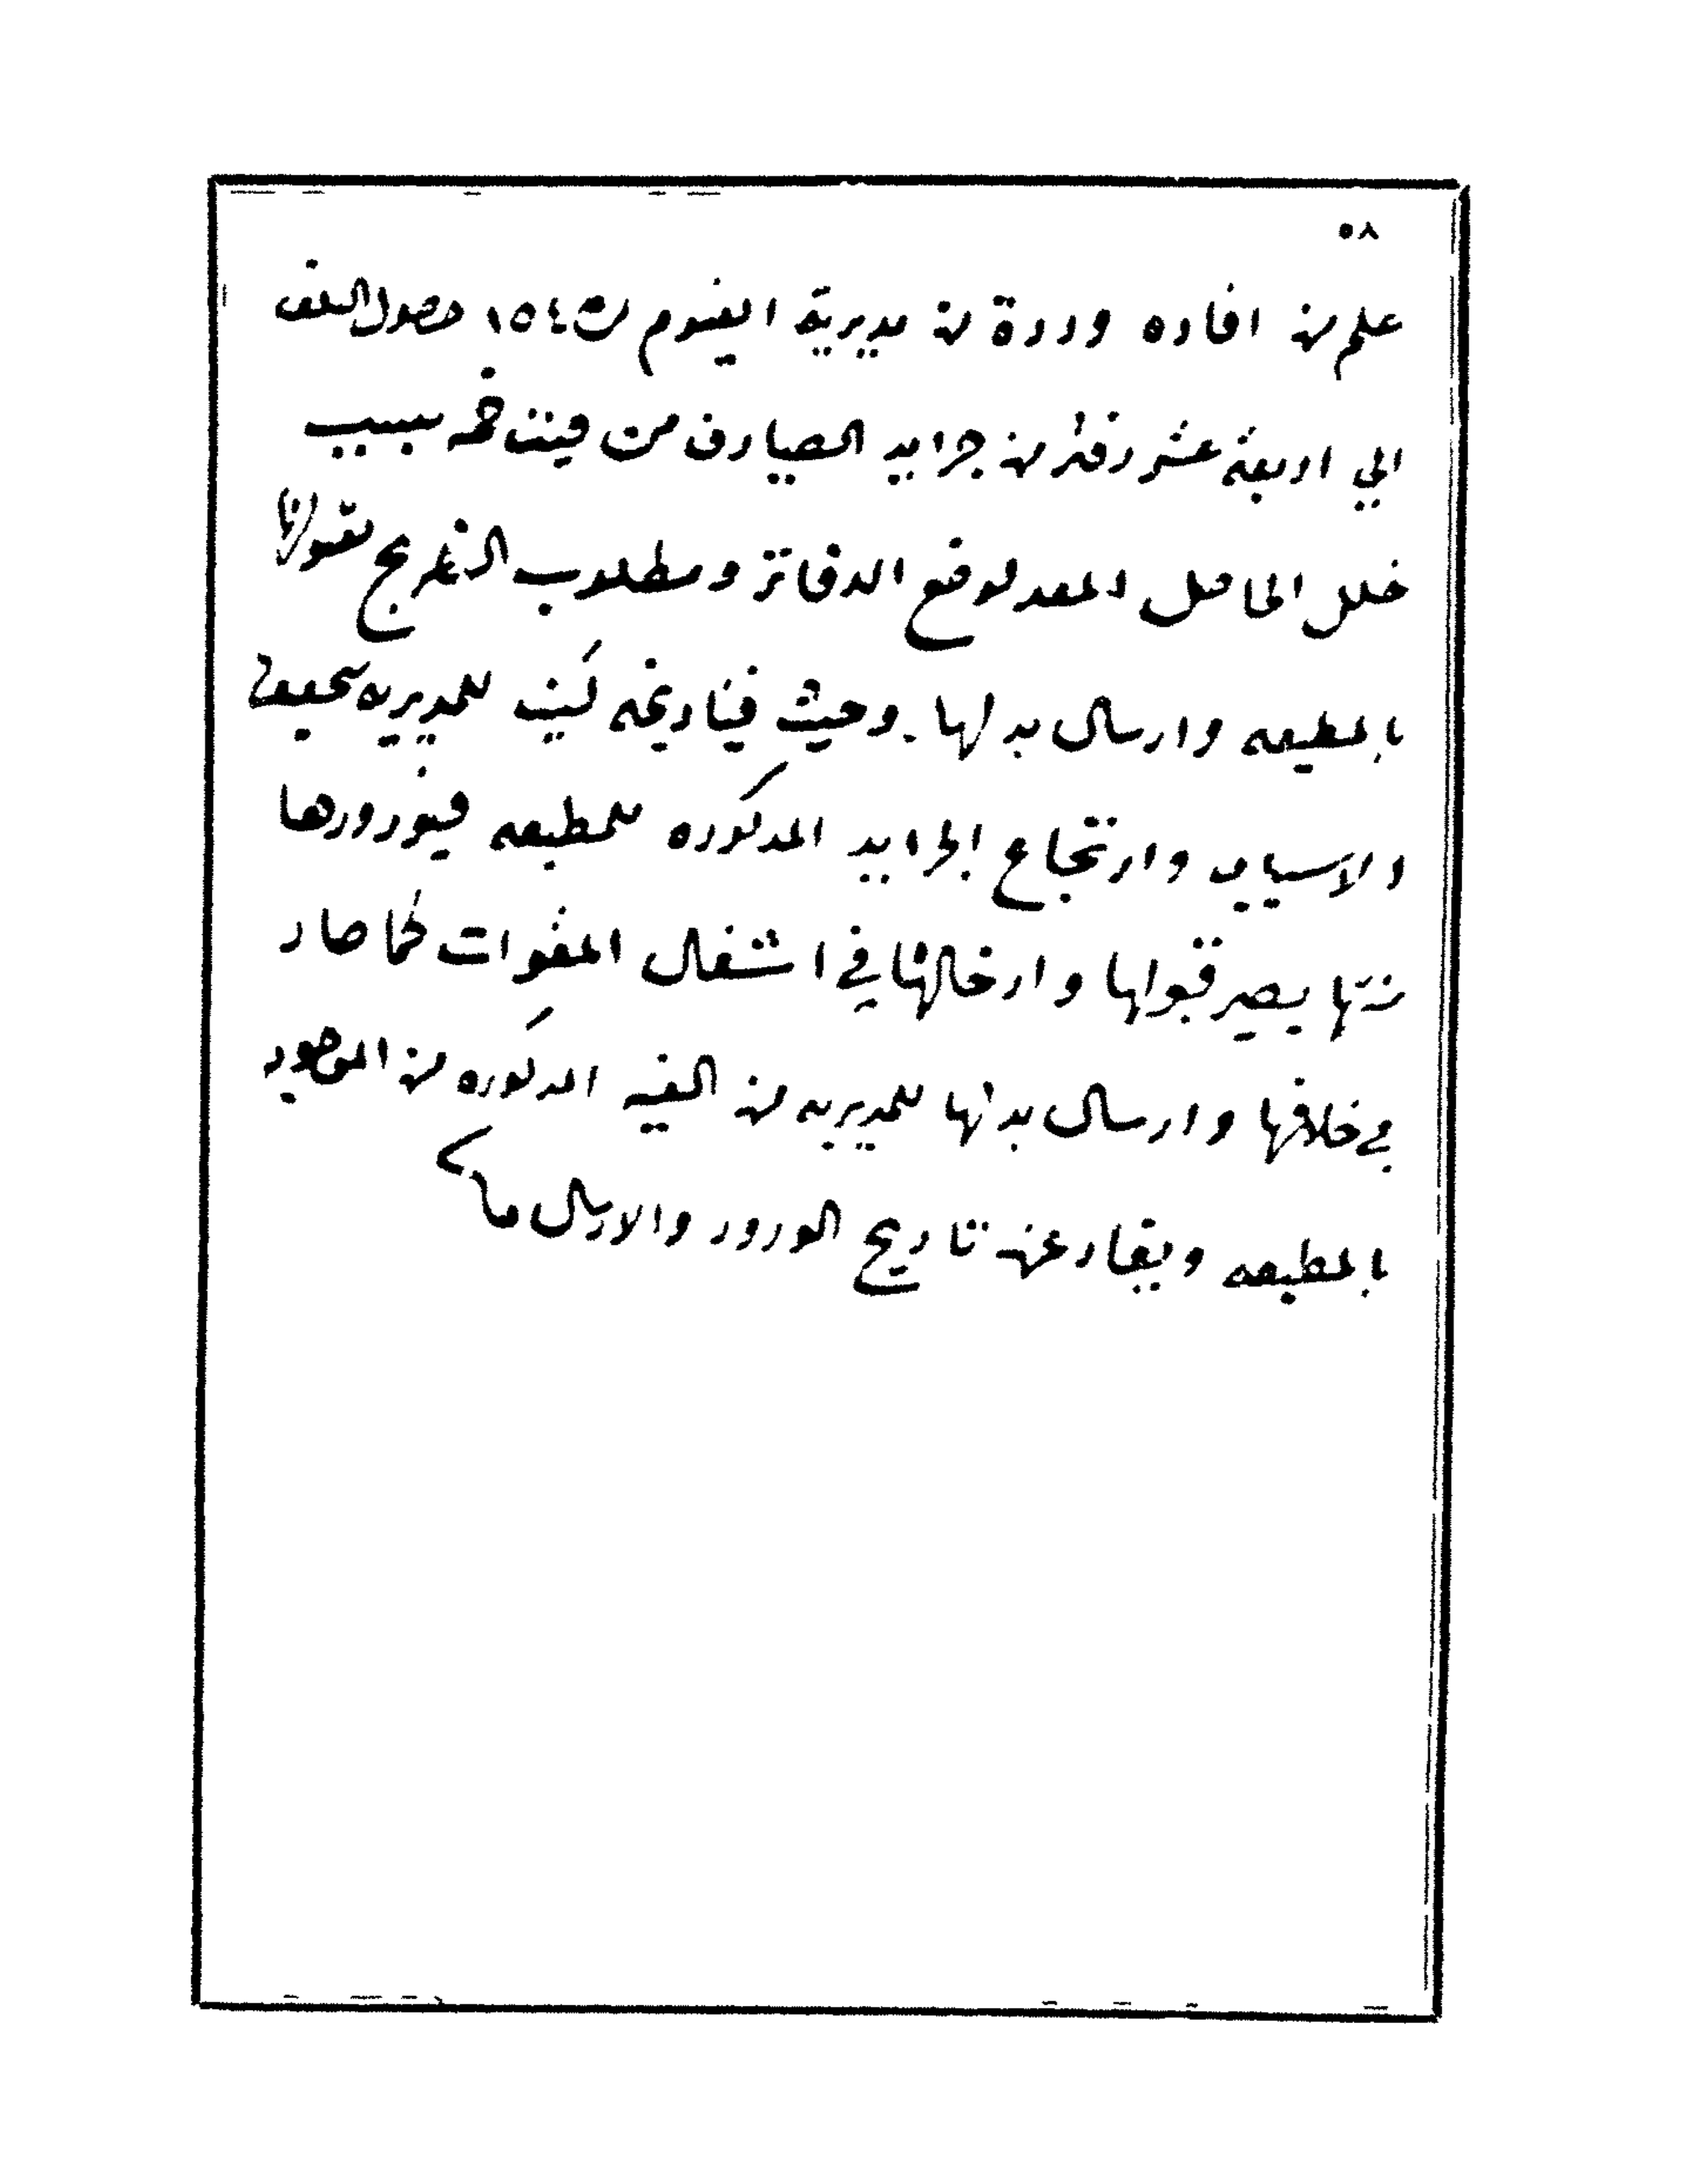 ٥٨
علم من افاده وردة من مديرية الفيوم ١٥٤ حصول التلف
الي اربعة عشر دفتر من جرايد الصيارف من فيئت نمره بسبب
خلل الحاصل المعد لوضع الدفاتر ومطلوب التاريح بقبولها
بالمطبعه وارسال بدلها. وحيث فيتاريخه كتب للمديريه بتحقيق
الاسباب وارتجاع الجرايد المذكوره للمطبعه فيفور ورودها
منها يصير قبولها وادخالها في اشغال المقوات كما صار
في خلافها وارسال بدلها للمديريه من الفيه المذكوره من الموجود
بالمطبعه ويفاد عن تاريخ الورود والارسال